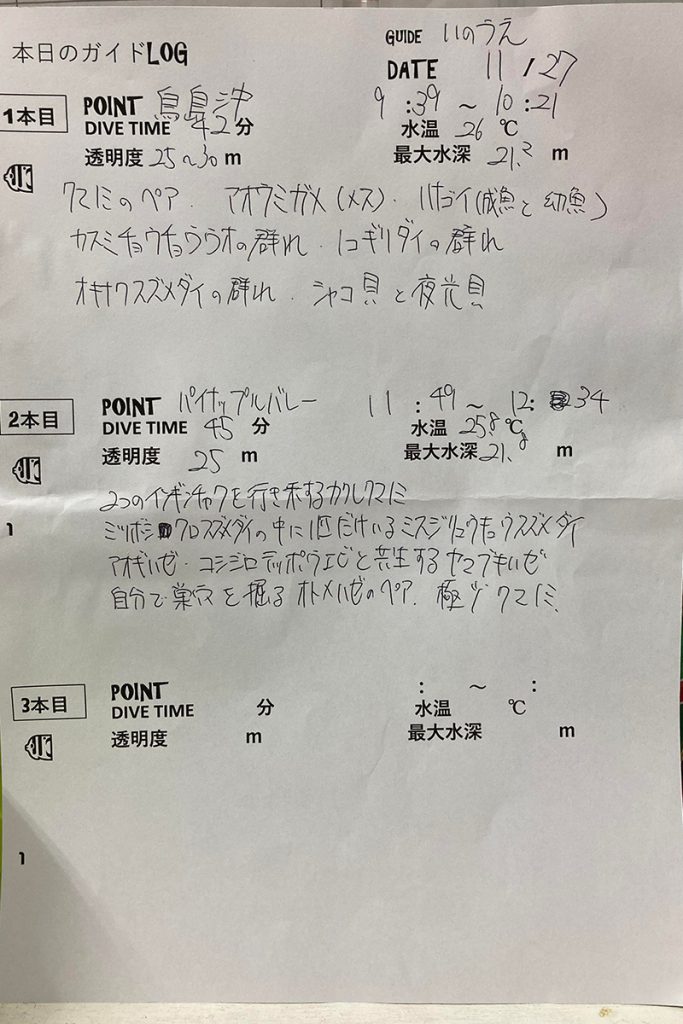 本日のガイドLOG
GUIDE いのうえ
DATE 11/27
1本目
POINT 鳥島沖 9:39~10:21
DIVE TIME 42分 水温 26℃
透明度 25~30m 最大水深 21.2m
クマノミのペア. アオウミガメ(メス). ハナゴイ(成魚と幼魚)
カスミチョウチョウウオの群れ. ノコギリダイの群れ
オキナワスズメダイの群れ. シャコ貝と夜光貝
2本目
POINT パイナップルバレー 11:49~12:34
DIVE TIME 45分 水温 25.8℃
透明度 25m 最大水深 21.8m
2つのイソギンチャクを行き来するカクレクマノミ
ミツボシクロスズメダイの中に1匹だけいるミスジリュウキュウスズメダイ
アオギハゼ・コシジロテッポウエビと共生するヤマブキハゼ
自分で巣穴を掘るオトメハゼのペア. 極小クマノミ.
3本目
POINT : ~ :
DIVE TIME 分 水温 ℃
透明度 m 最大水深 m